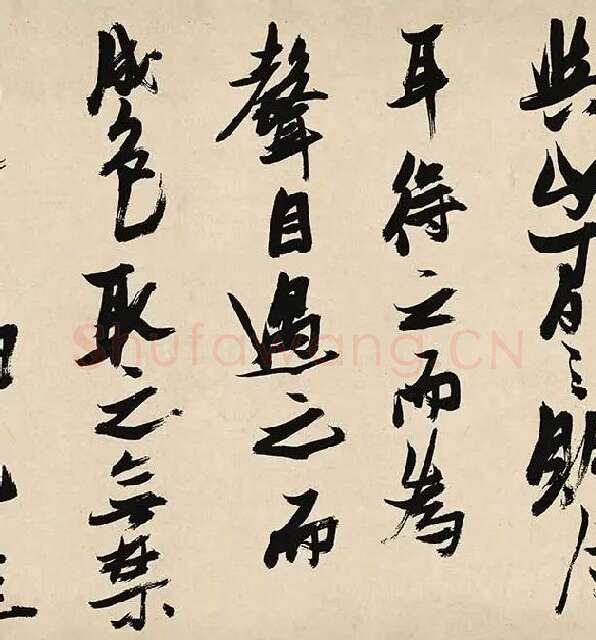 與山間之明月
耳得之而為
聲目遇之而
成色取之無禁
Shufawang.CN